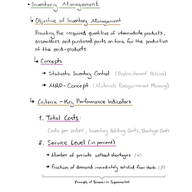 • Inventory Management
↳ Objective of Inventory Management
Providing the required quantities of intermediate products,
assemblies and purchased parts on time for the production
of the end-products
↳ Concepts
→ Stochastic Inventory Control (Replenishment Policies)
→ MRP-Concept (Materials Requirement Planning)
↳ Criteria - Key Performance Indicators
1. Total Costs:
Costs per order, Inventory Holding Costs, Shortage Costs
2. Service Level (in percent)
→ Number of periods without shortages (α)
→ Fraction of demands immediately satisfied from stock (β)
Example of Service in Supermarket